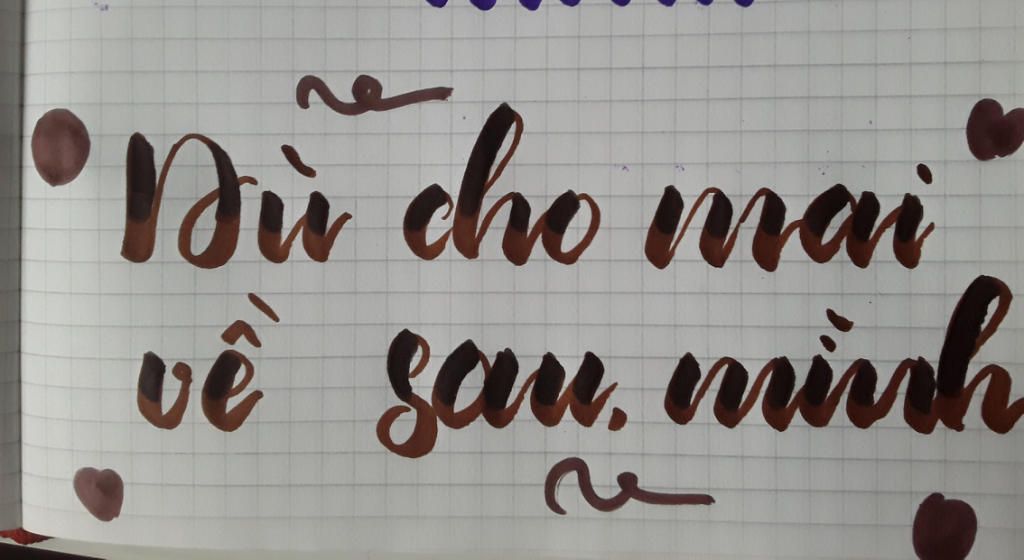 Dù cho mai
về sau, mình